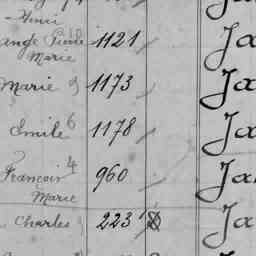 Henri
ange Emile 1121 Ja
Marie
Marie 1173 Ja
Emile 6 1178 Ja
François 4 960 Ja
Marie
Charles 223 Ja